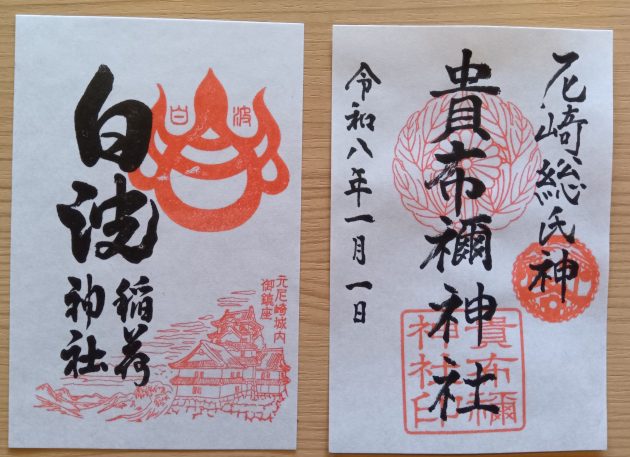 白波
稲荷
神社
白波
元尼崎城内
御鎮座
尼崎総氏神
貴布禰神社
令和八年一月一日
貴布禰
神社印